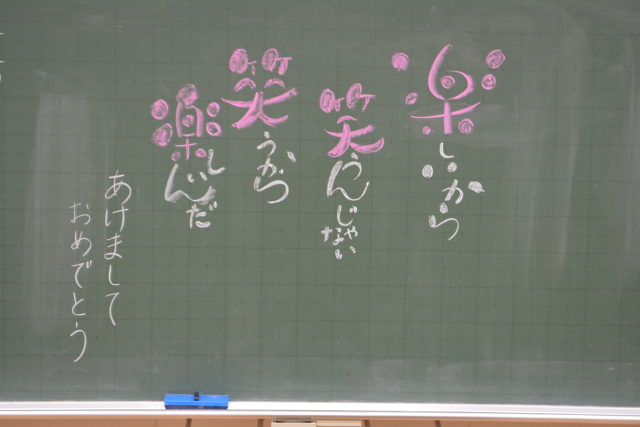 楽しいから
笑うんじゃない
笑うから
楽しいんだ
あけまして
おめでとう